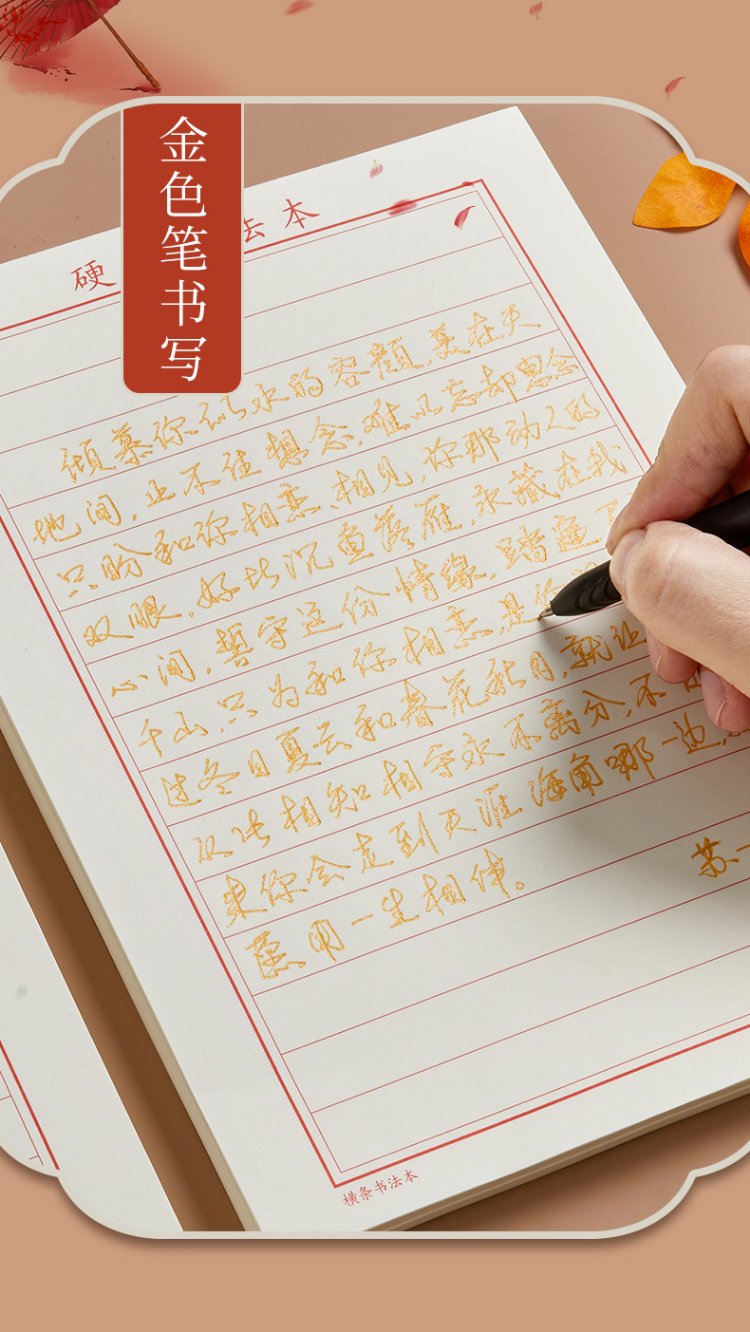 金色笔书写
硬 法本
倾慕你似水的容颜,美在天
地间,止不住想念,难以忘却思念
只盼和你相恋、相见,你那动人的
双眼,好比沉鱼落雁,永藏在我
心间,誓守这份情缘,踏遍
千山,只为和你相恋,是你
过冬日夏云和春花秋月,就让
从此相知相守永不离分,不
来你会走到天涯海角哪一边,
愿用一生相伴。
苏
横条书法本